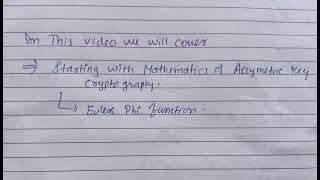 In This video we will cover
⇒ Starting with Mathematics of Assymetric Key
Cryptography.
↳ Eulers Phi function.